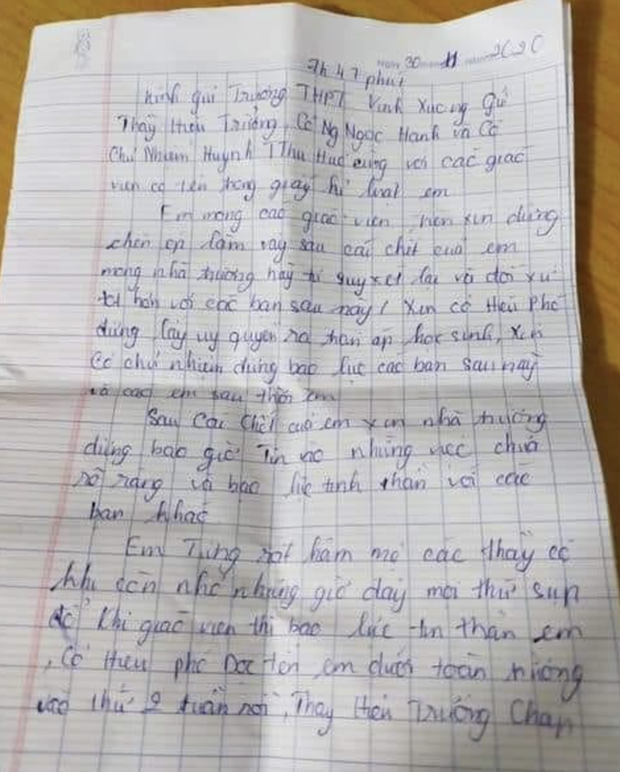 7h 47 phút
Ngày 30 11 2020
Kính gửi Trường THPT Vĩnh Xương gửi
Thầy Hiệu Trưởng, Cô Ng Ngọc Hạnh và Cô
Chủ Nhiệm Huỳnh T Thu Huệ cùng với các giáo
viên có tên trong giấy kỉ luật em
Em mong các giáo viên, xin dừng
chèn ép lắm vậy sau cái chết của em
mong nhà trường hãy suy xét lại và đối xử
tốt hơn với các bạn sau này! Xin cô Hiệu Phó
đừng lấy uy quyền ra đàn áp học sinh, xin
cô chủ nhiệm đừng bạo lực các bạn sau này
và các em sau thời em
Sau cái chết của em xin nhà trường
đừng bao giờ tin vào những việc chưa
rõ ràng và bạo lực tinh thần với các
bạn khác
Em Từng rất hâm mộ các thầy cô
khi còn nhỏ nhưng giờ đây mọi thứ sụp
đổ khi giáo viên thì bạo lực tin thần em
, Cô Hiệu phó Đọc tên em dưới toàn trường
vào thứ 2 tuần rồi, Thầy Hiệu Trưởng Chan